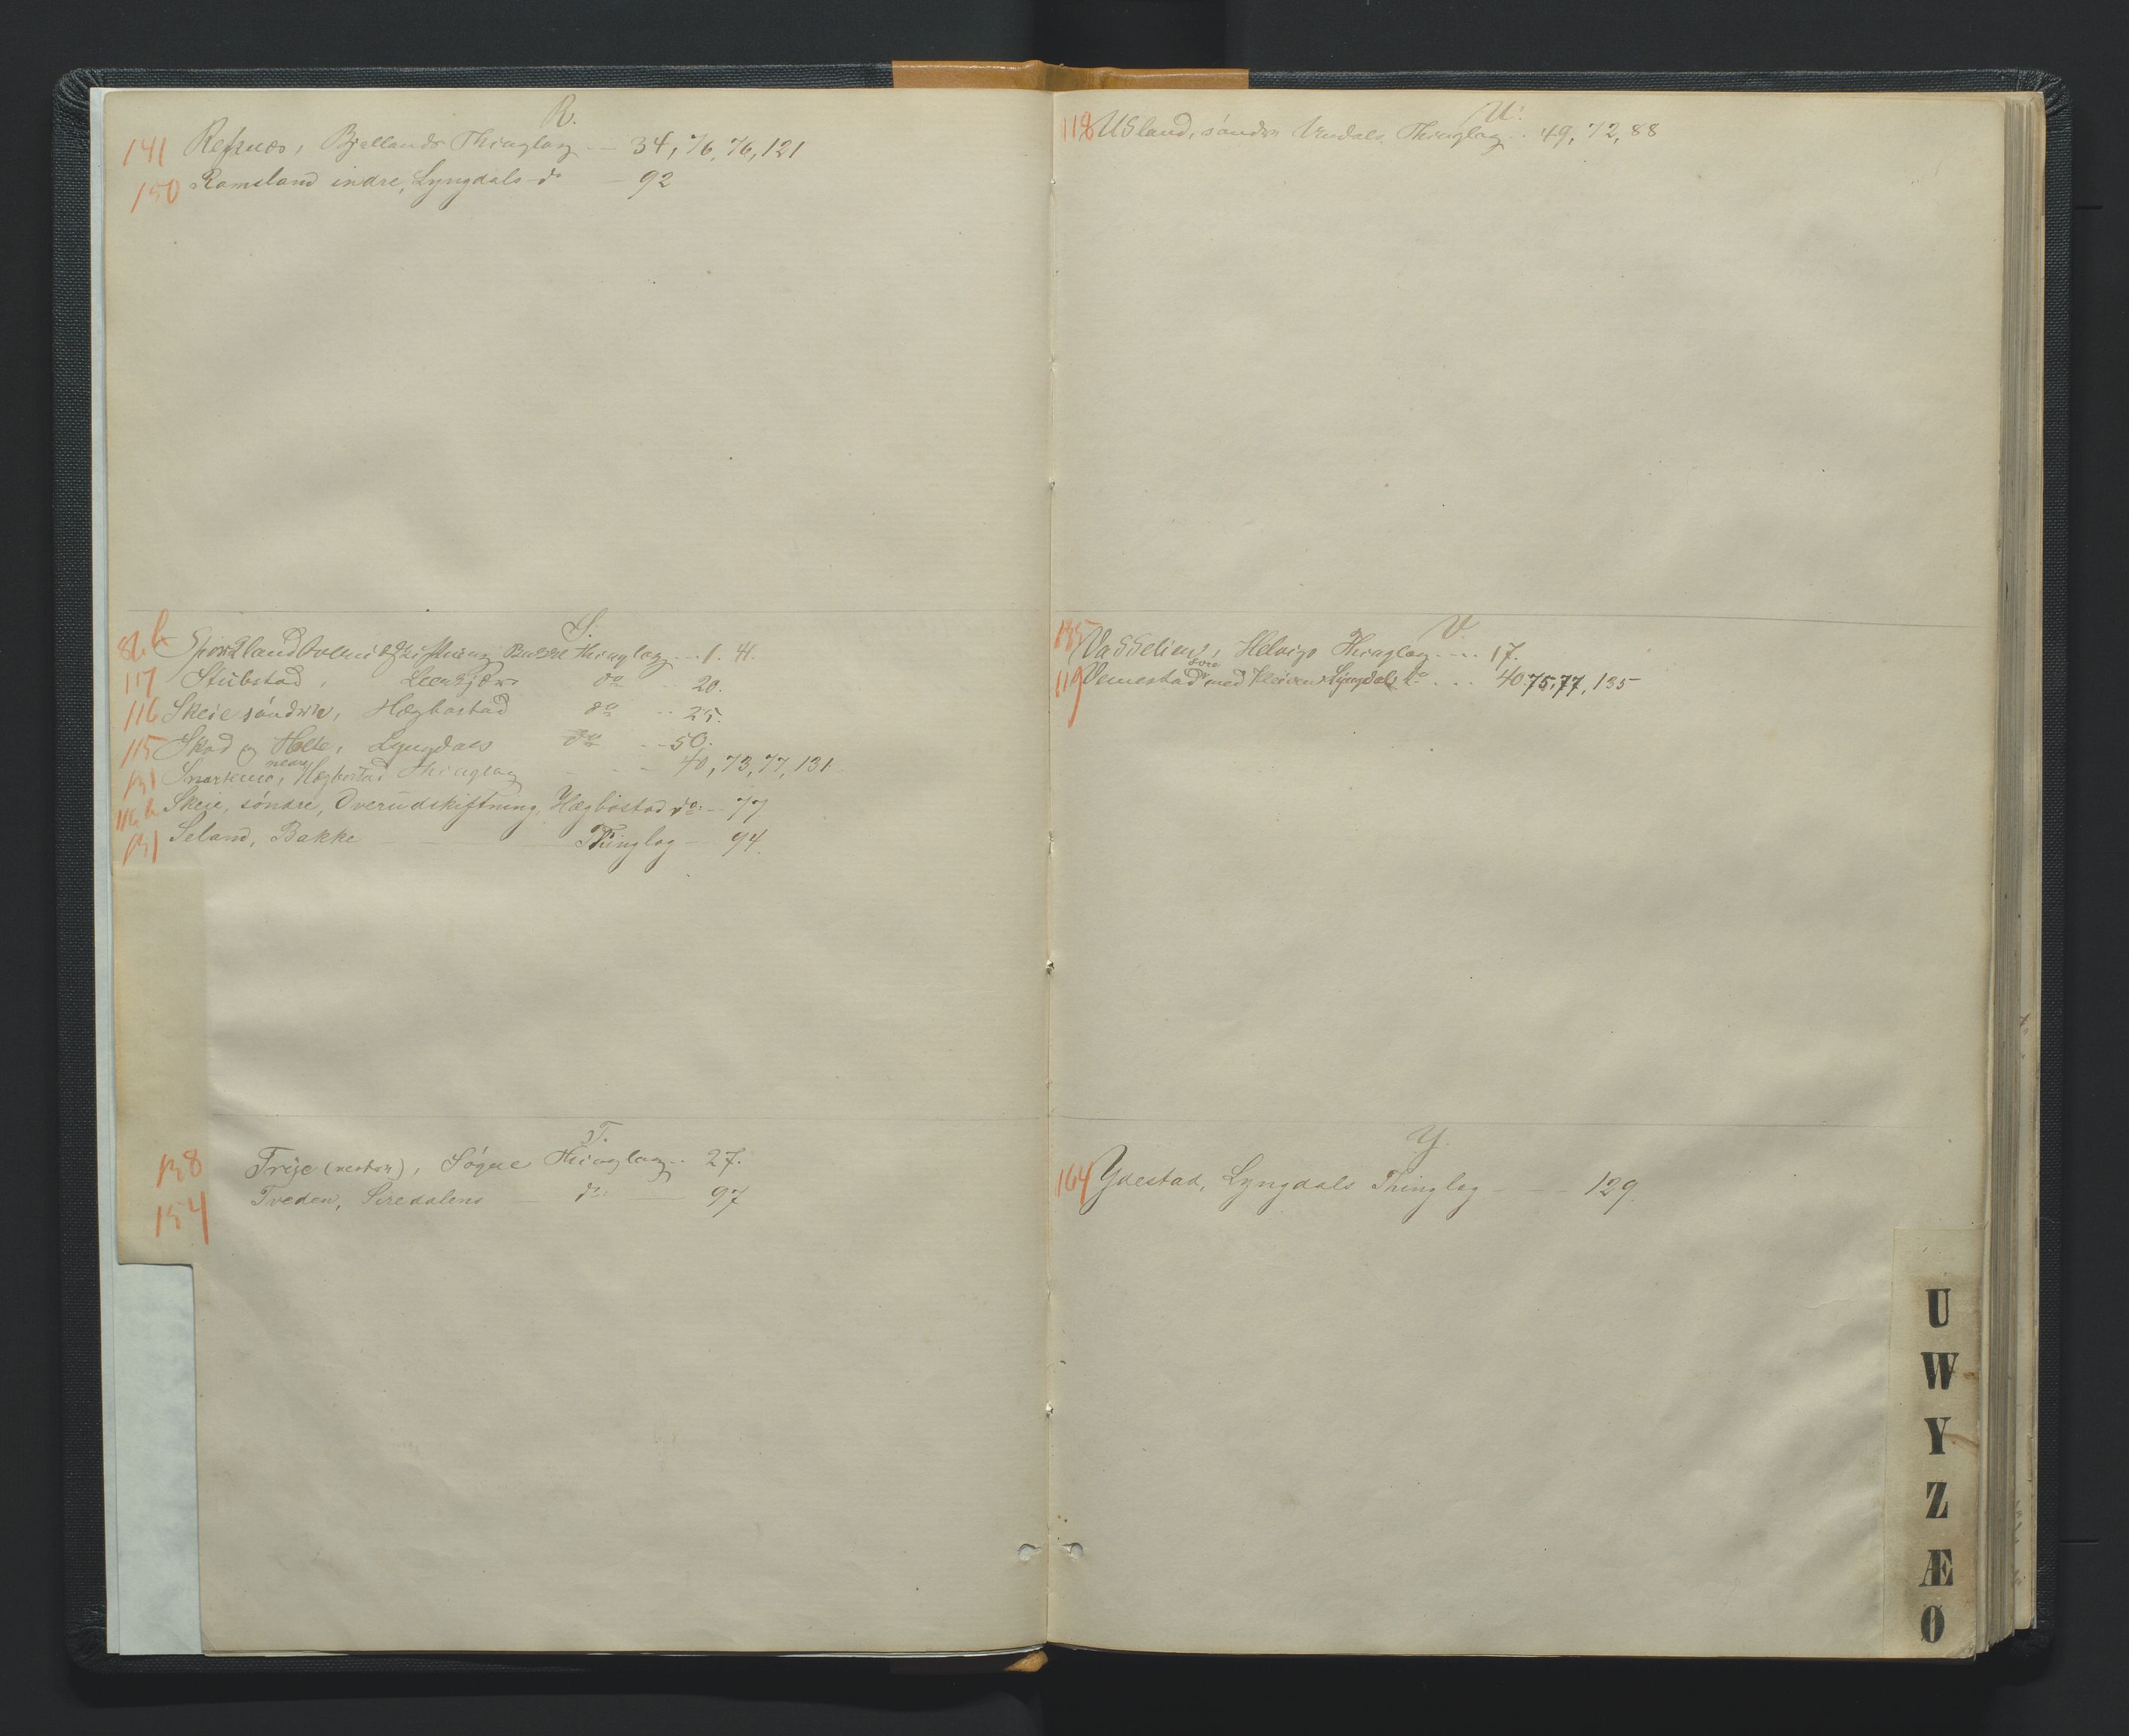 R.
141 Refsnæs, Bjellands Thinglag -- 34, 76, 76, 121
150 Ramsland indre, Lyngdals do - 92
S.
86 b Thinglag --- 1. 41.
117 Stubstad, do -- 20.
116 Skeie søndre, Hægbostad do -- 25.
115 Skod og Holte, Lyngdals do --- 50.
131 Snartemo, nedre Hægbostad Thinglag - - - 40, 73, 77, 131
116 b Skeie, søndre, Overudskiftning, Hægbostad do -- 77
Seland, Bakke - - - Thinglag - 94.
T.
138 Trÿe (vestre), Søgne Thinglag -- 27.
154 Tveden, Siredalens - do - 97
U.
118 Usland, søndre Undals Thinglag -- 49, 72, 88
V.
135 Thinglag --- 17.
119 Vemestad øvre med Kleiven Lyngdals do - - - 40. 75, 77, 135
Y.
164 Ydestad, Lyngdals Thinglag - - - 129
U
W
Y
Z
Æ
Ø